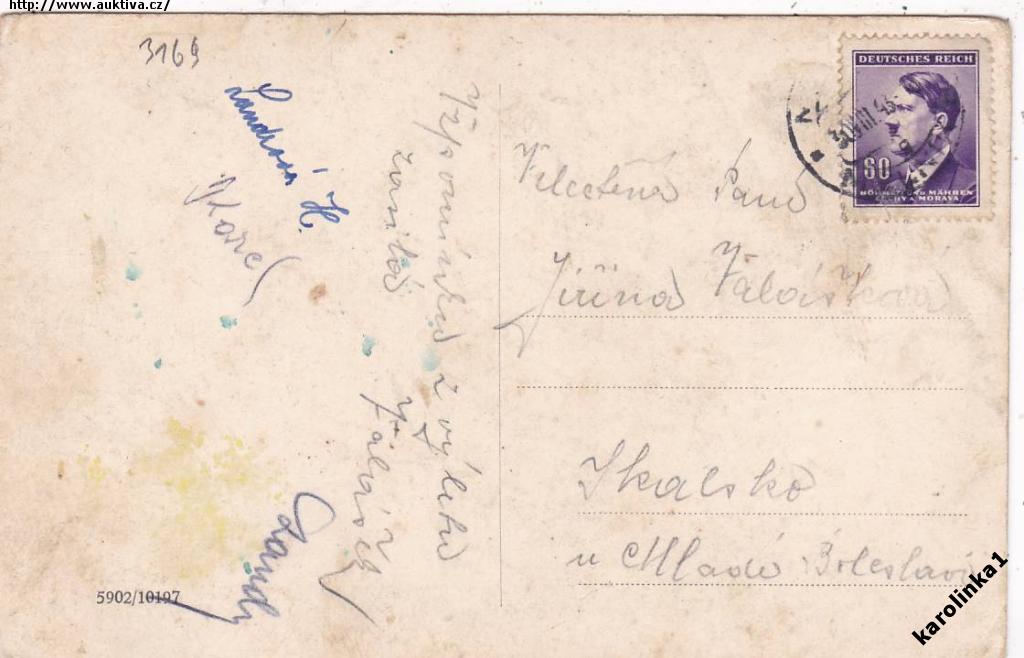 http://www.auktiva.cz/
3169
DEUTSCHES REICH
60
BÖHMEN U. MÄHREN
ČECHY A MORAVA
Velectěná Paní
Jiřina Valášková
Skalsko
u Mladé Boleslavi
Vzpomínku z výletu
zasílá
Valášek
Landová H.
Karel
Landa
5902/10197
karolinka1